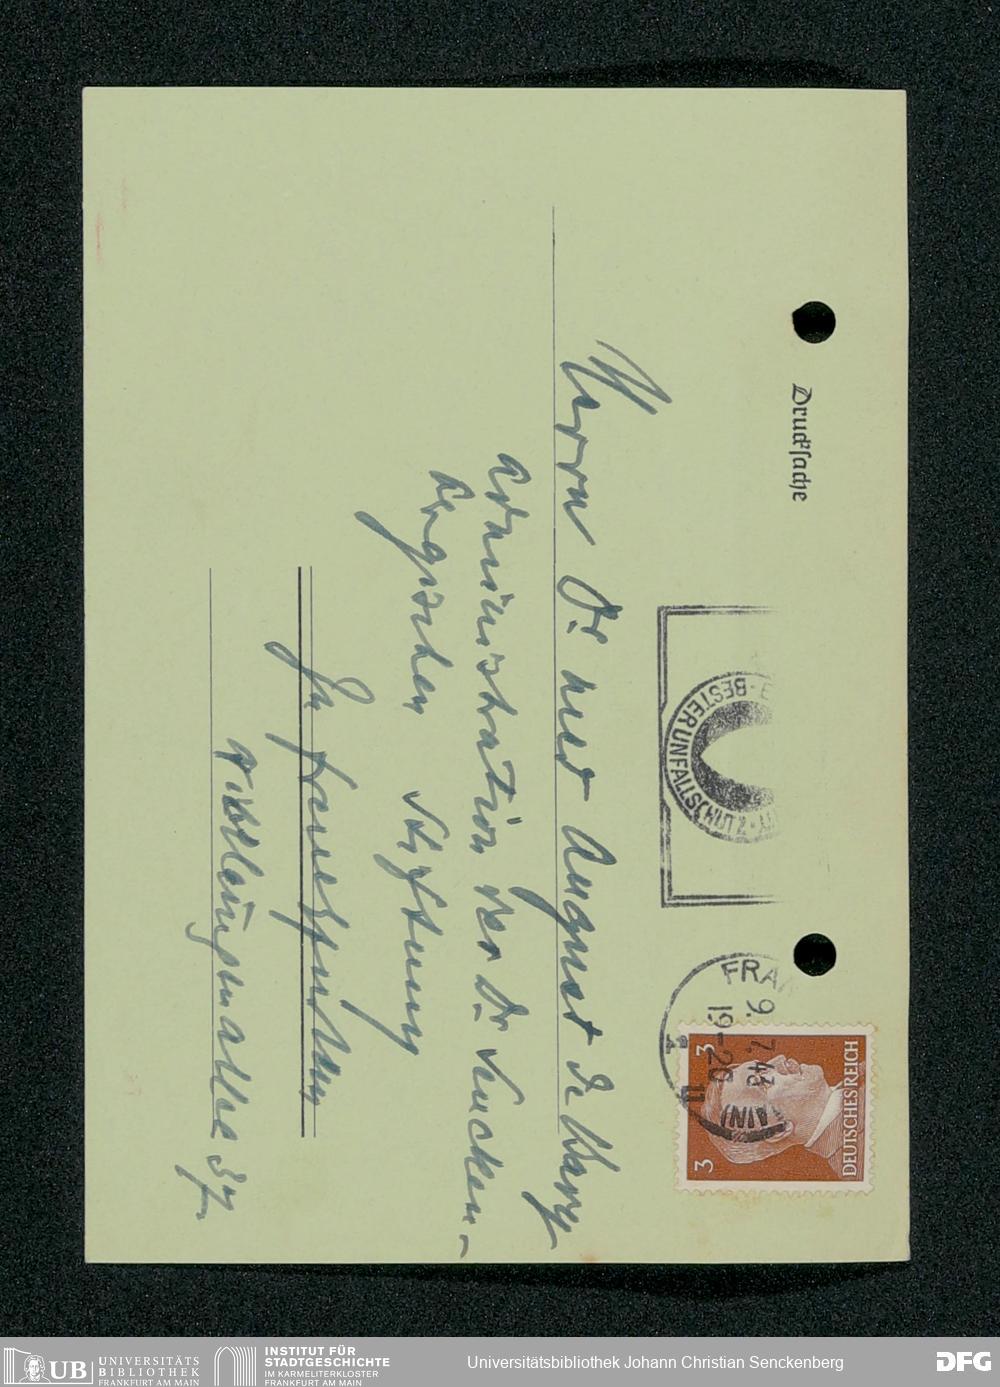 Drucksache
BESTER UNFALLSCHUTZ
FRAN
9.7.43
19-20
AIN)
11
3
3
DEUTSCHES REICH
Herrn Dr med August de Bary
Administration der Dr. Sencken-
bergischen Stiftung
In Frankfurt Main
Niblelungenallee 37.
UB UNIVERSITÄTS
BIBLIOTHEK
FRANKFURT AM MAIN
INSTITUT FÜR
STADTGESCHICHTE
IM KARMELITERKLOSTER
FRANKFURT AM MAIN
Universitätsbibliothek Johann Christian Senckenberg
DFG